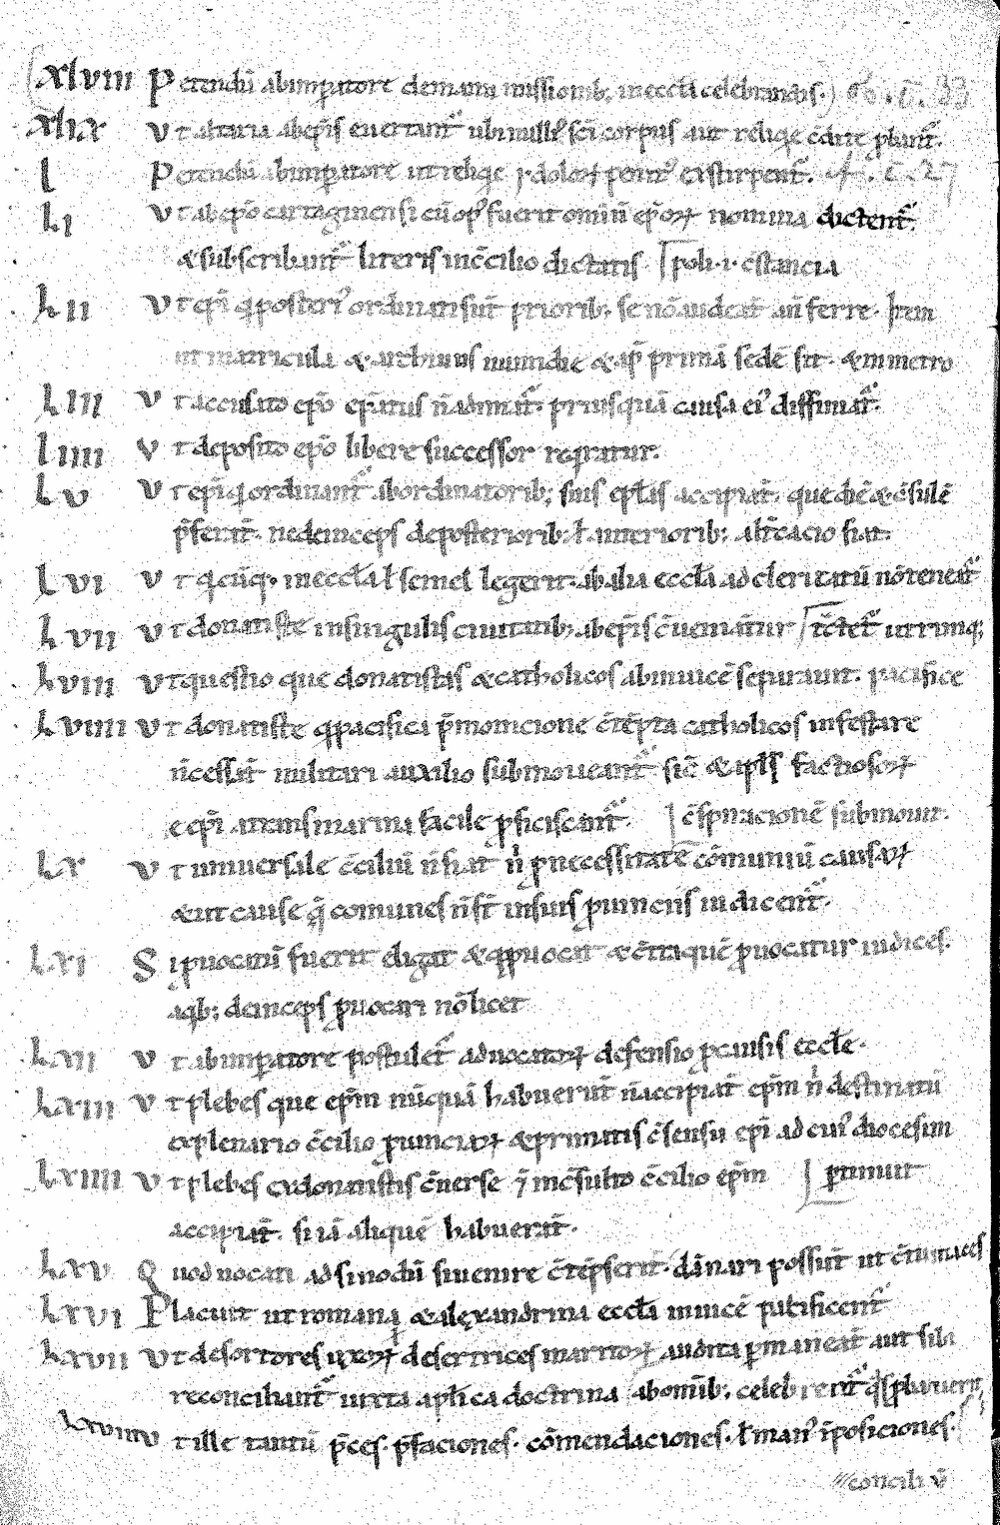 xlviii Petendū ab imꝑatore de manumissionib; in eccl̄ia celebrandis.
xlix Vt altaria ab ep̄is euertant᷑ ubi null᷒ sc̄i corpus aut reliqe c̄dite ꝓbant᷑.
l Petendū ab imꝑatore ut reliqe idoloꝝ penit᷒ exstirpent᷑.
li Vt ab ep̄o cartaginensi cū op᷒ fuerit omniū ep̄oꝝ nomina dictent᷑
& subscribant᷑ literis in c̄cilio dictatis
lii Vt ep̄i qi posteri᷒ ordinati sunt̄ priorib; se nō audeat̄ anferre. Item
ut matricula & archiuus numidie & ap̄ primā sedē sit. & in metro
liii Vt accusato ep̄o ep̄atus n̄ adimat᷑. priusquā causa ei᷒ diffiniat᷑.
liiii Vt deposito ep̄o libere successor reqiratur.
lv Vt ep̄i qi ordinant᷑ ab ordinatorib; suis ep̄l̄as accipiat̄. que diē & c̄sulē
p̄ferat̄. ne deinceps de posteriorib; ł anteriorib; alt̄cacio fiat.
lvi Vt qicūq. in eccl̄a ł semel legerit. ab alia eccl̄a ad clericatū nō teneat᷑
lvii Vt donatiste in singulis ciuitatib; ab ep̄is c̄ueniant̄ur utrimq;
lviii Vt questio que donatistas & catholicos ab inuicē separauit. pacifice
lviiii Vt donatiste qi pacifica p̄monicione c̄tēpta catholicos infestare
n̄ cessant̄ militari auxilio submoueant᷑ sic̄ & ipsi factiosoꝝ
e ep̄i a transmarina facile ꝓficiscant᷑. c̄spiracionē submouit.
lx Vt uniuersale c̄ciliū n̄ fiat n̄ ꝓ necessitate cōmuniū causaꝝ
& ut cause q̄ comunes n̄ st̄ in suis ꝓuinciis iudicent᷑.
lxi Si ꝓuocatū fuerit eligat & qi ꝓuocat & c̄tra quē ꝓuocatur iudices.
a qib; deinceps ꝓuocari nō licet
lxii Vt ab imꝑatore postulet᷑ aduocatoꝝ defensio ꝓ causis eccl̄e.
lxiii Vt plebes que ep̄m nūquā habuerunt̄ n̄ accipiat̄ ep̄m n̄ destinatū
ex plenario c̄cilio ꝓuinciaꝝ & primatis c̄sensu ep̄i ad cui᷒ diocesim
lxiiii Vt plebes cū donatistis c̄uerse in c̄sulto c̄cilio ep̄m ꝑtinuit
accipiat̄. si iā aliquē habuerat̄.
lxv Quod uocati ad sinodū si uenire c̄tēpserit. dānari possint̄ ut c̄tumaces
lxvi Placuit ut romana & alexandrina eccl̄a inuicē pacificent᷑
lxvii Vt desertores uxoꝝ desertrices maritoꝝ audita ꝑmaneat̄ aut sibi
reconcilient᷑ iuxta aplīca doctrina ab omīb; celebrent᷑ qe ꝓbauerit
lxviiii Vt ille tantū p̄ces. p̄faciones. cōmendaciones. ł man᷒ īposiciones.
concili v̄